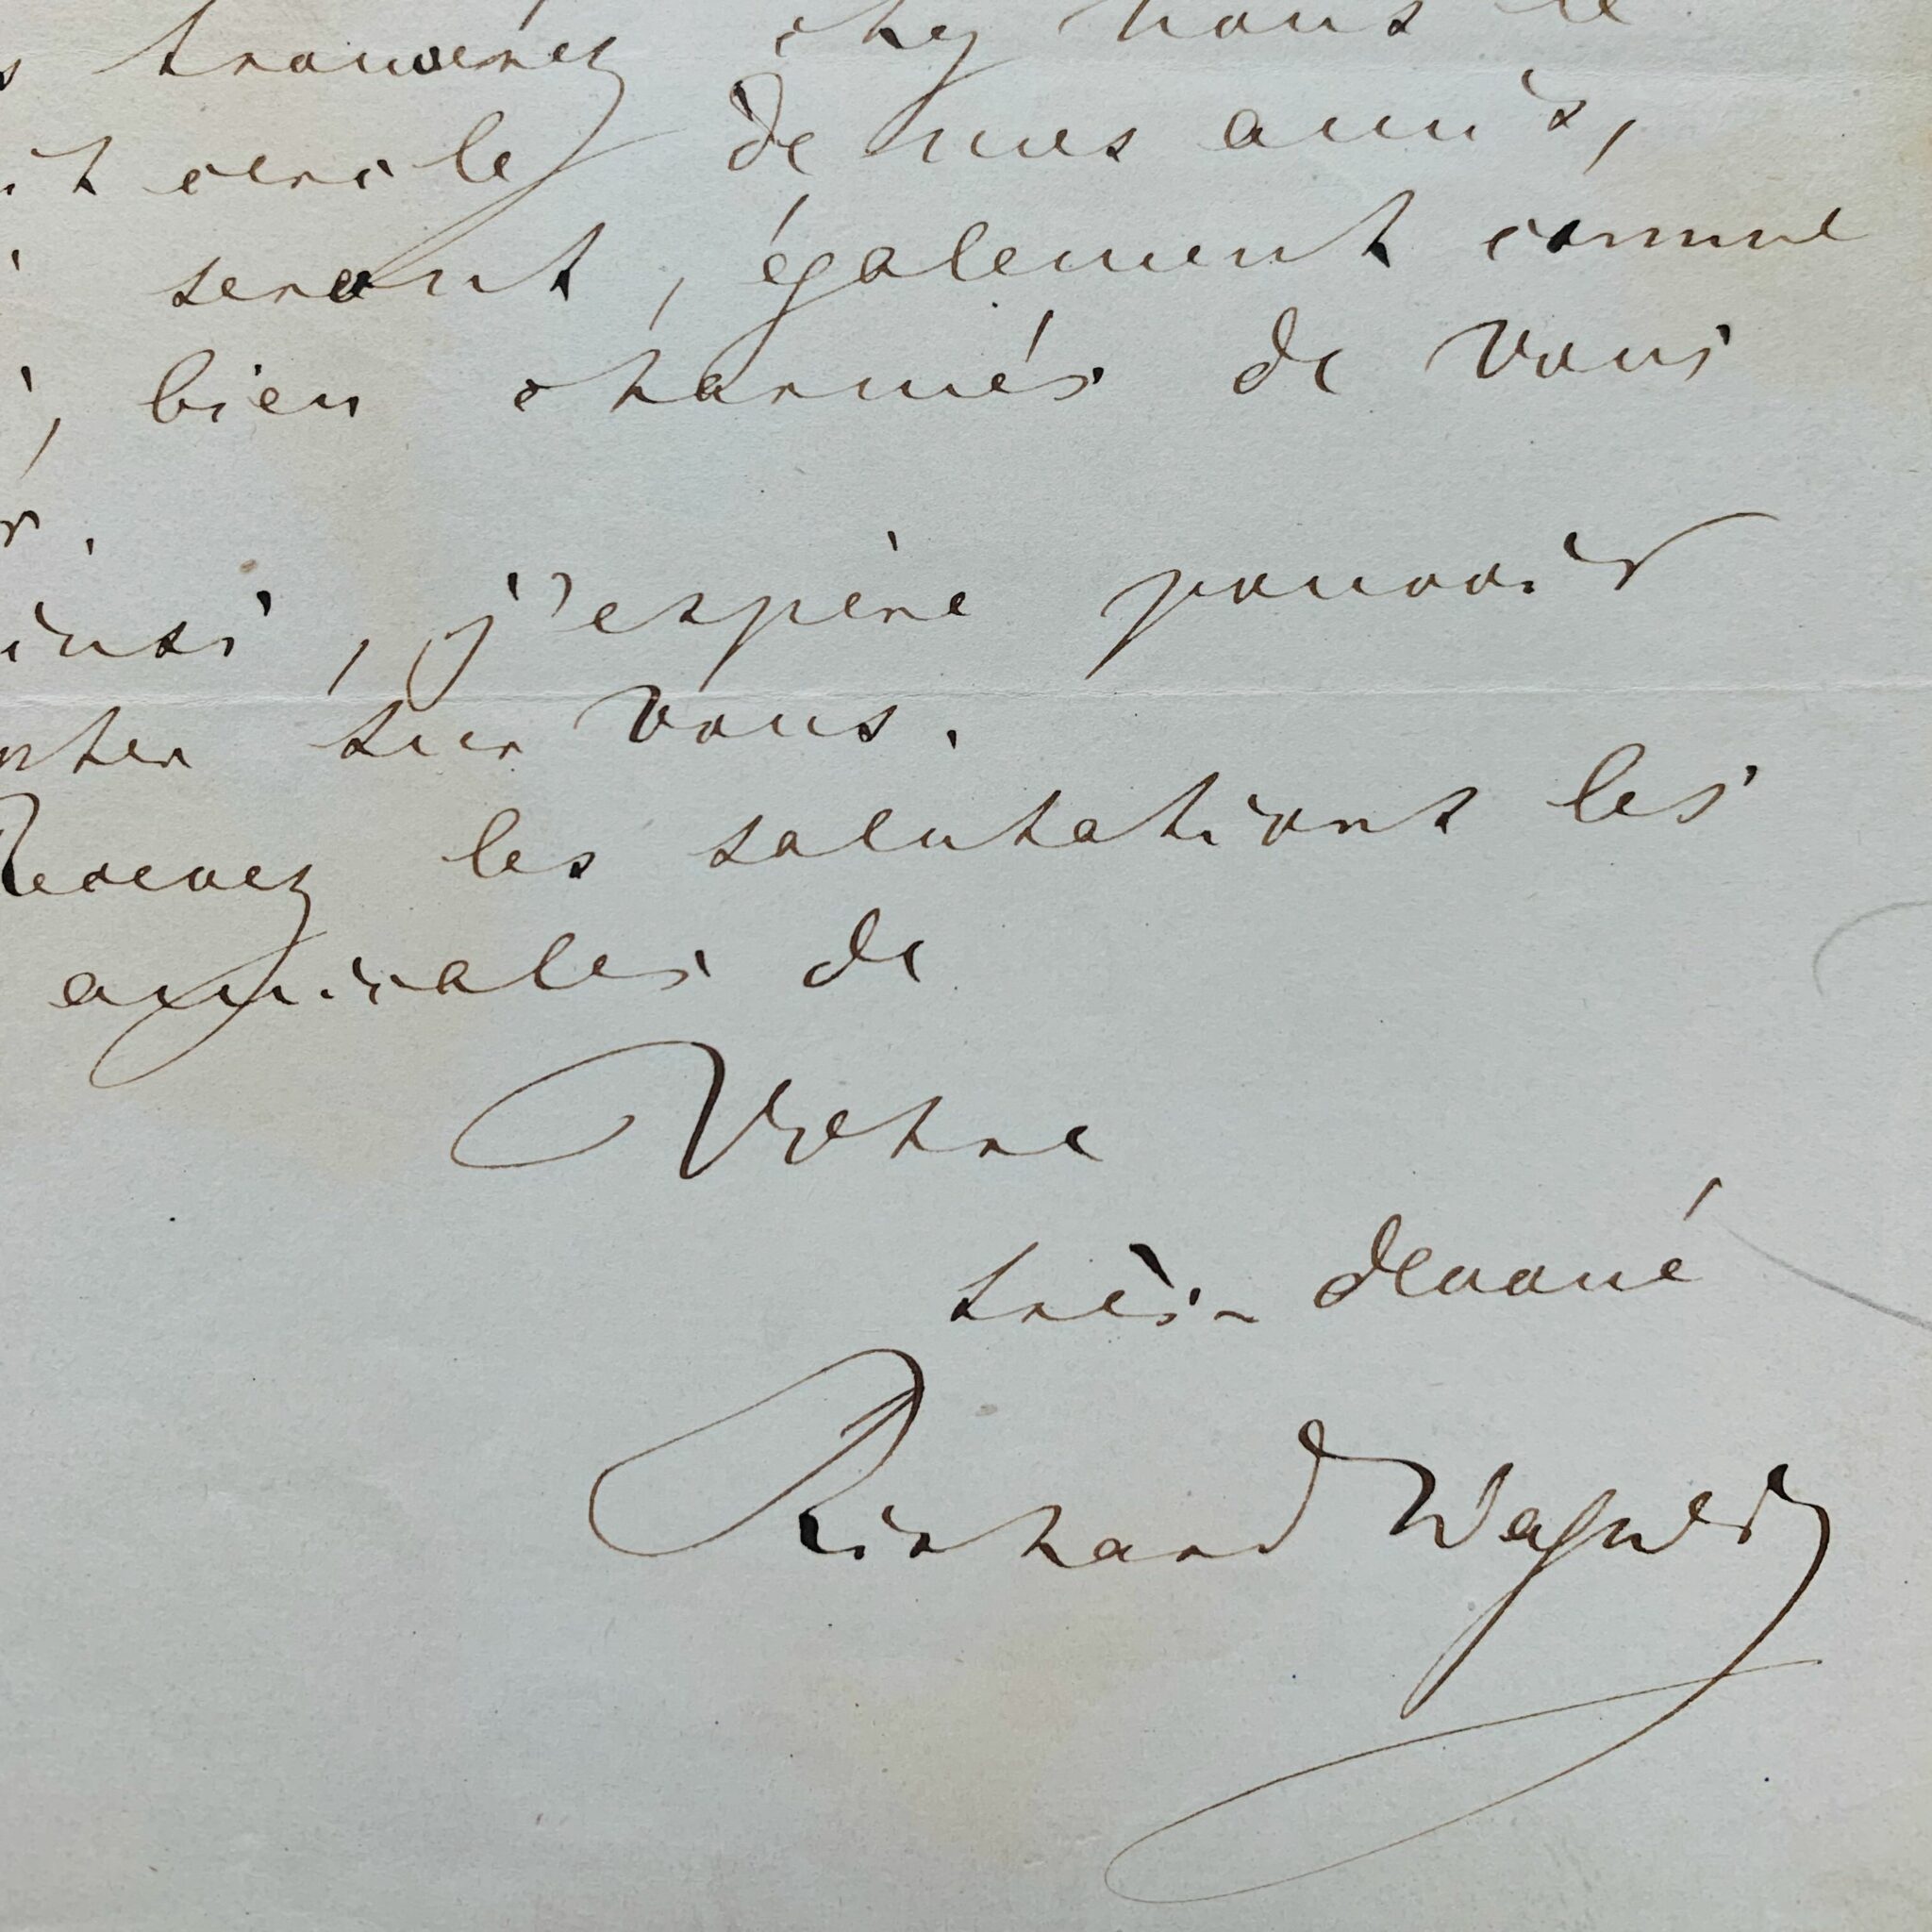 s trouverez chez nous le
it cercle de mes amis,
seront, également comme
, bien charmés de vous
r.
insi, j'espère pouvoir
pter sur vous.
Recevez les salutations les
amicales de
Votre
très-devoué
Richard Wagner